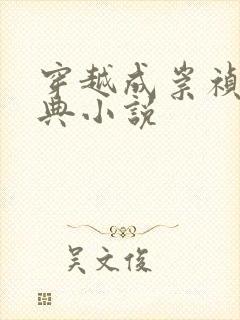 穿越成崇禎
典小説
吴文俊